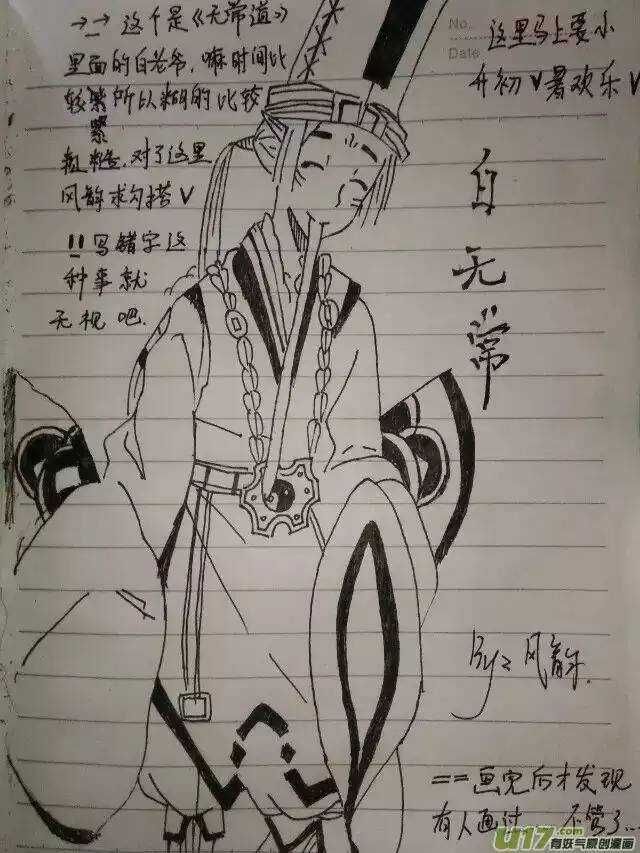 →_→ 这个是《无常道》
里面的白老爷，嘛时间比
较紧所以糊的比较
粗糙，对了这里
风龄求勾搭V
!! 写错字这
种事就
无视吧.
No.
Date
这里马上要小
升初V暑欢乐V
白
无
常
By: 风龄.
== 画完后才发现
有人画过 不管了...
U17.com
有妖气原创漫画